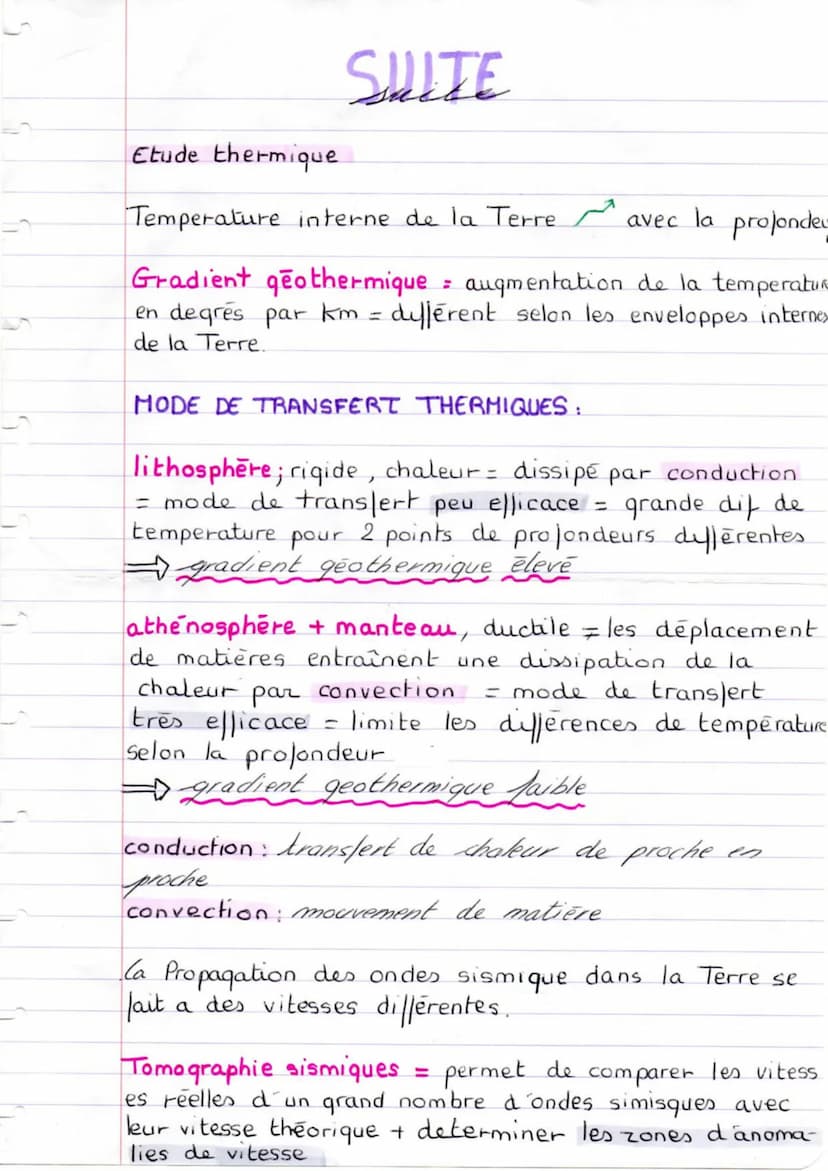 SUITE
suite
Etude thermique
Temperature interne de la Terre avec la profondeu
Gradient géothermique = augmentation de la temperatur
en degrés par km = différent selon les enveloppes internes
de la Terre.
MODE DE TRANSFERT THERMIQUES :
lithosphère ; rigide , chaleur = dissipé par conduction
= mode de transfert peu efficace = grande dif de
temperature pour 2 points de profondeurs différentes
⇒ gradient géothermique élevé
athénosphère + manteau, ductile = les déplacement
de matières entraînent une dissipation de la
chaleur par convection = mode de transfert
très efficace = limite les différences de température
selon la profondeur
⇒ gradient geothermique faible
conduction : transfert de chaleur de proche en
proche
convection : mouvement de matière
la Propagation des ondes sismique dans la Terre se
fait a des vitesses différentes.
Tomographie sismiques = permet de comparer les vitess
es réelles d'un grand nombre d'ondes simisques avec
leur vitesse théorique + determiner les zones d'anoma-
lies de vitesse